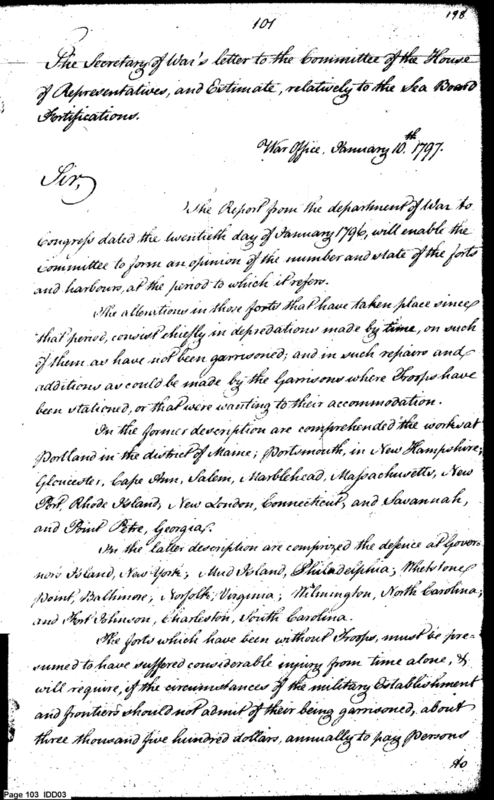 198
101
The Secretary of War's letter to the Committee of the House
of Representatives, and Estimate, relatively to the Sea Board
Fortifications.
War Office, January 10th 1797.
Sir,
The Report from the department of War to
Congress dated the twentieth day of January 1796, will enable the
Committee to form an opinion of the number and state of the forts
and harbours, at the period to which it refers.
The alterations in those forts that have taken place since
that period, consist chiefly in depredations made by time, on such
of them as have not been garrisoned; and in such repairs and
additions as could be made by the Garrisons where Troops have
been stationed, or that were wanting to their accommodation.
In the former description are comprehended the works at
Portland in the district of Maine; Portsmouth, in New Hampshire;
Gloucester, Cape Ann, Salem, Marblehead, Massachusetts, New
Port, Rhode Island, New London, Connecticut, and Savannah,
and Point Petre, Georgia.
In the latter description are comprized the defence at Gover-
nors Island, New York; Mud Island, Philadelphia; Whetstone
Point, Baltimore; Norfolk, Virginia; Wilmington, North Carolina;
and Fort Johnson, Charleston, South Carolina.
The forts which have been without Troops, must be pre-
sumed to have suffered considerable injury from time alone, &
will require, if the circumstances of the military Establishment
and frontiers should not admit of their being garrisoned, about
three thousand five hundred dollars, annually to pay Persons
to
Page 103 IDD03